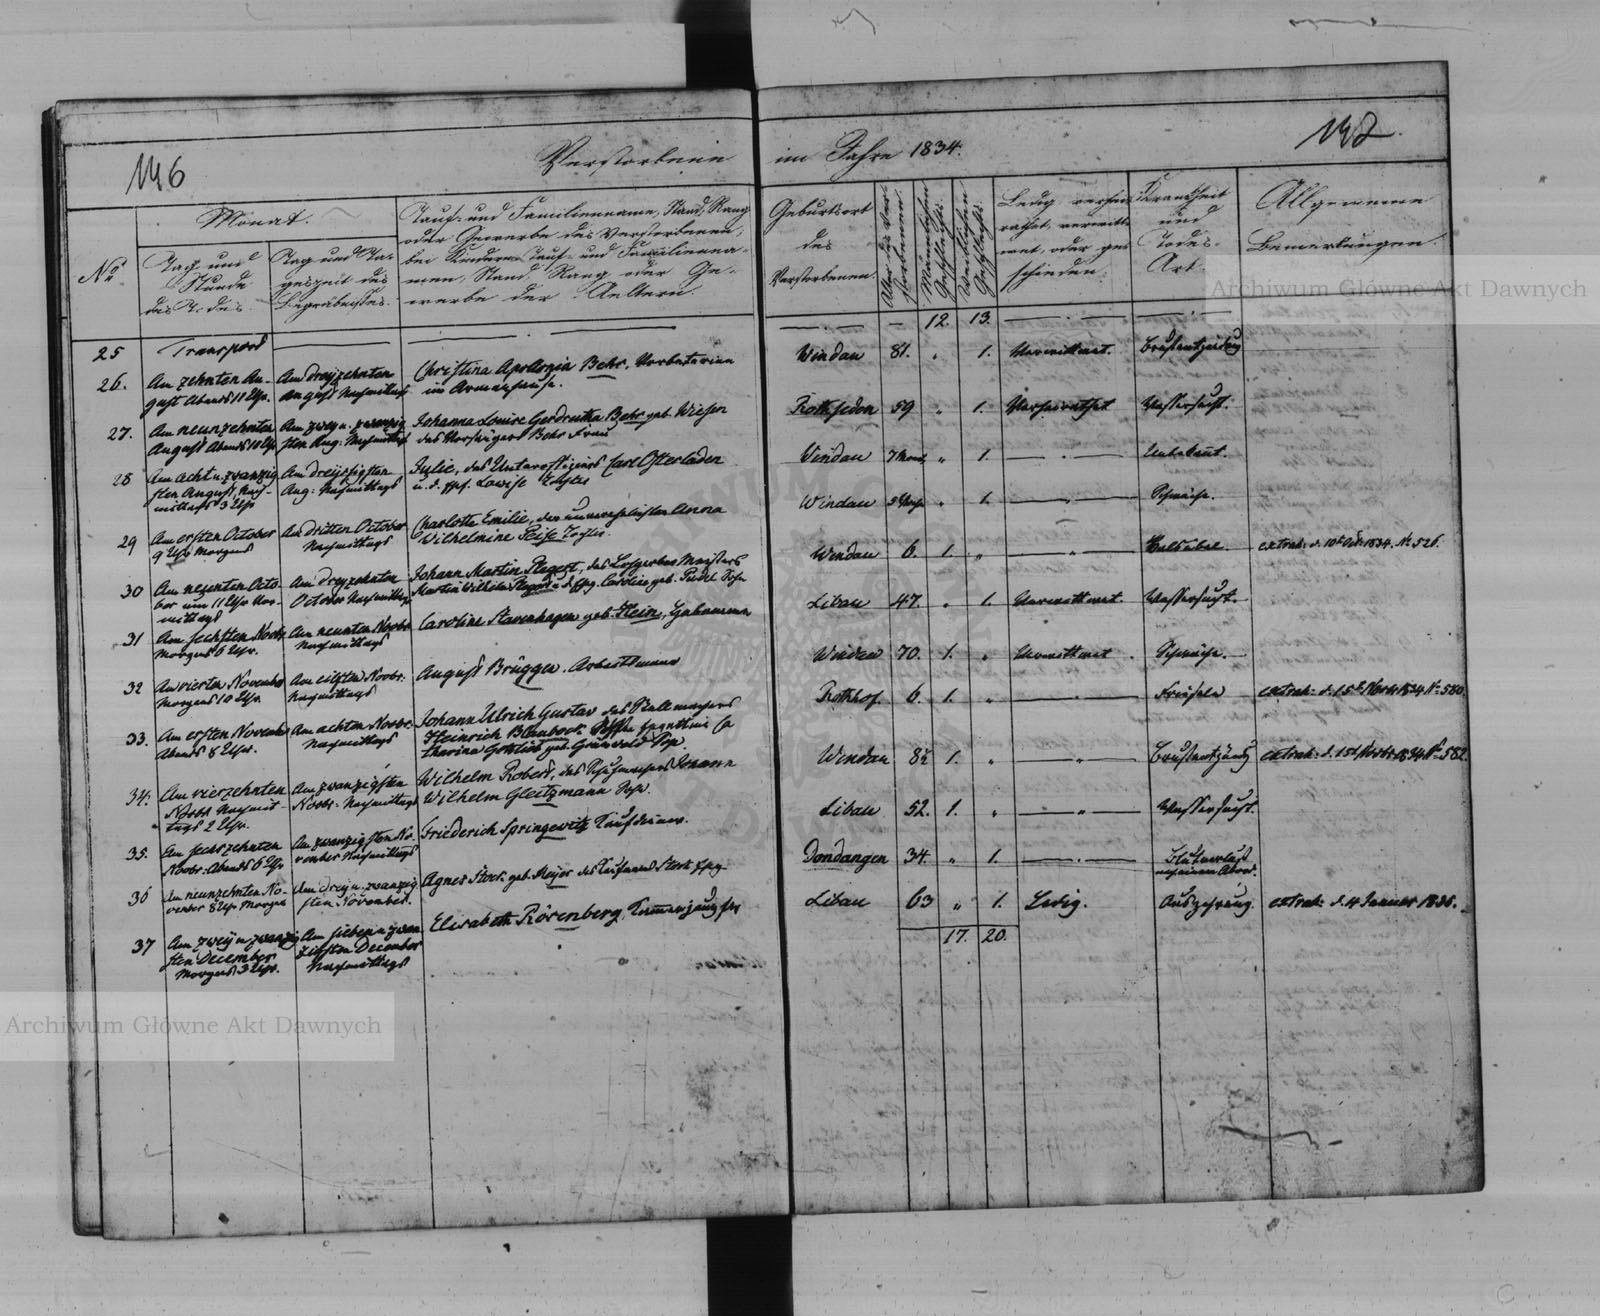 146
Verstorbene
Monat.
Tauf- und Familienname, Stand, Rang
oder Gewerbe des Verstorbenen,
bei Kindern Tauf- und Familienna-
men, Stand, Rang oder Ge-
werbe der Aeltern.
No
Tag und
Stunde
des Todes.
Tag und Ta-
geszeit des
Begräbnisses.
25 Transport
26. Am zehnten Au-
gust Abends 11 Uhr.
Am dreyzehnten
August Nachmittags
Christina Apollonia Behr,
im Armenhause.
27. Am neunzehnten
August Abends 10 Uhr
Am zwey u. zwanzig
sten Aug: Nachmittags
Johanna Louise Gerdrutha Behr geb. Wiesen
des Behr Frau
28 Am acht u. zwanzig
sten August, Nach-
mittags 3 Uhr
Am dreyssigsten
Aug: Nachmittags
Julie, des Carl Osterladen
u. d. Ehef. Lowise Tochter
29 Am ersten October
9 Uhr Morgens
Am dritten October
Nachmittags
Charlotte Emilie, der unverehelichten Anna
Wilhelmine Tochter.
30 Am neunten Octo-
ber um 11 Uhr Vor-
mittags
Am dreyzehnten
October Nachmittags
Johann Martin Stegert, des Lohgerber Meisters
Martin Wilhelm u. d. Ehg. Caroline geb. Sohn
31 Am sechsten Novbr
Morgens 6 Uhr.
Am neunten Novbr
Nachmittags
Caroline Stavenhagen geb. Stein, Hebamme
32 Am vierten November
Morgens 10 Uhr.
Am eilften Novbr.
Nachmittags
August Brügger. Arbeitsmann
33. Am ersten November
Abends 8 Uhr.
Am achten Novbr:
Nachmittags
Johann Ulrich Gustav des Stellmachers
Heinrich Ca
tharina Gottlieb geb. Grünwald Sohn
34. Am vierzehnten
Novbr Nachmit-
tags 2 Uhr.
Am zwanzigsten
Novbr. Nachmittags
Wilhelm Robert, des Schuhmachers Johann
Wilhelm Gleitzmann Sohn.
35. Am sechszehnten
Novbr. Abends 6 Uhr
Am zwanzigsten No-
vember Nachmittags
Friederich Springewitz Kaufmann.
36 Am neunzehnten No-
vember 8 Uhr Morgens
Am drey u. zwanzig
sten November.
Agnes Stock geb. Meyer des Kaufmanns Stock Ehg.
37 Am zwey u. zwanzig
sten December
Morgens 3 Uhr.
Am sieben u. zwan
zigsten December
Nachmittags
Elisabeth Rösenberg,
im Jahre 1834.
147.
Geburtsort
des
Verstorbenen.
Alter des Ver-
storbenen.
Männlichen
Geschlechts.
Weiblichen
Geschlechts.
Ledig verhei-
rathet, verwitt-
wet, oder ge-
schieden.
Krankheit
und
Todes-
Art.
Allgemeine
Bemerkungen.
12. 13.
Windau 81. " 1. Verwittwet. Brustentzündung
59 " 1. Verheirathet Wassersucht.
Windau 7 Mon. " 1. Unbekannt.
Windau " 1. Schwäche.
Windau 6. 1. " " extrah: d. 10t Oct: 1834. No 526.
Libau 47. " 1. Verwittwet. Wassersucht.
Windau 70. 1. " Verwittwet Schwäche.
Rothhof. 6. 1. " Frieseln extrah: d. 15t Novbr 1834 No 580.
Windau 8½ 1. " " Brustentzündg extrah: d. 15t Novbr. 1834 No 582.
Libau 52. 1. " " Wassersucht.
Dondangen 34. " 1. Blutverlust
Libau 63 " 1. Ledig. Auszehrung. extrah: d. 4 Januar 1835.
17. 20.
Archiwum Główne Akt Dawnych
Archiwum Główne Akt Dawnych